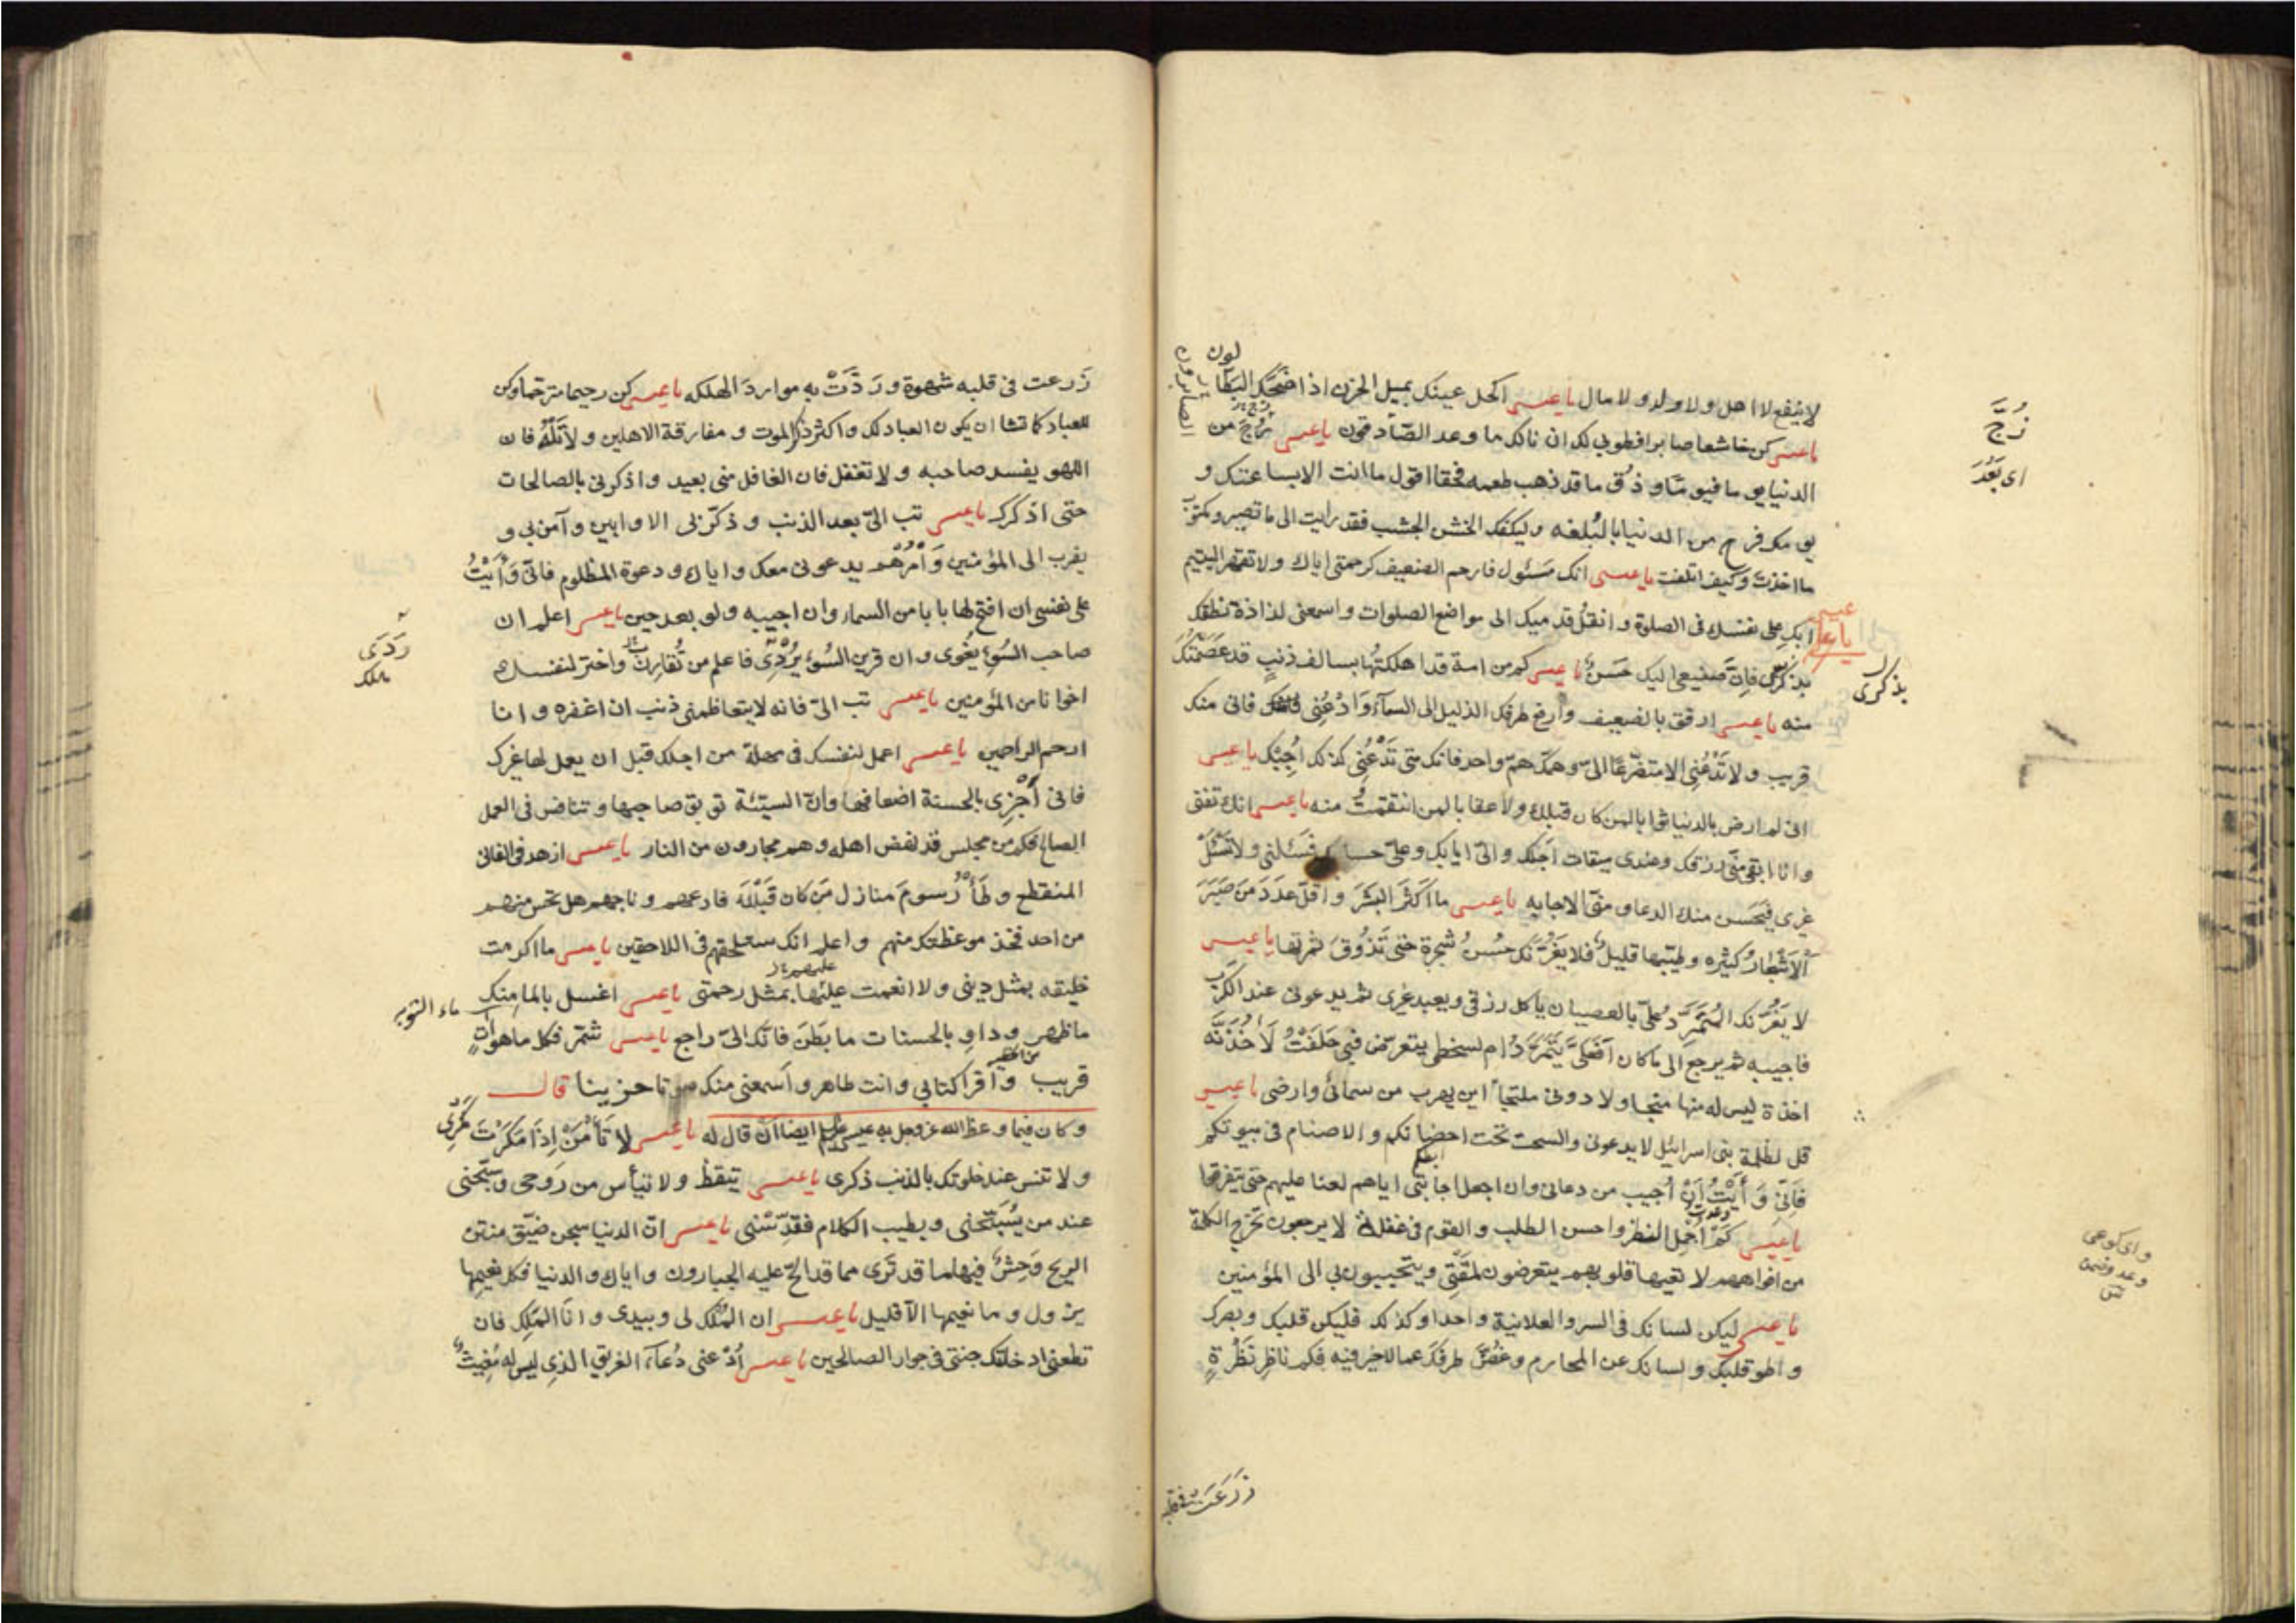 لا ينفع لا اهل ولا ولد ولا مال يا عيسى اكحل عينك بميل الحزن اذا ضحك البطا
لون
يا عيسى كن خاشعا صابرا فطوبى لك ان نالك ما وعد الصابرون يا عيسى زج من
الدنيا يوما فيوما وذق ما قد ذهب طعمه فحقا اقول ما انت الا بساعتك و
يومك فرح من الدنيا بالبلغه وليكفك الخشن الجشب فقد رايت الى ما تصير ومكتوب
ما اخذت وكيف اتلفت يا عيسى انك مسئول فارحم الضعيف كرحمتى اياك ولا تقهر اليتيم
ابك على نفسك فى الصلوة وانقل قدميك الى مواضع الصلوات واسمعنى لذاذة نطقك
بذكرى فان صنيعى اليك حسن يا عيسى كم من امة قد اهلكتها بسالف ذنب قد عصمتك
منه يا عيسى ارفق بالضعيف وارفع طرفك الذليل الى السمآء وادعنى فانى منك
قريب ولا تدعنى الا متضرعا الىّ وهمك هم واحد فانك متى تدعنى كذلك اجبك يا عيسى
انى لم ارض بالدنيا ثوابا لمن كان قبلك ولا عقابا لمن انتقمت منه يا عيسى انك تفنى
وانا ابقى ومنى رزقك وعندى ميقات اجلك والىّ ايابك وعلىّ حسابك فسئلنى ولا تسئل
غيرى فيحسن منك الدعا ومنى الاجابه يا عيسى ما اكثر البشر واقل عدد من صبر
الاشجار كثيره وطيبها قليل فلا يغرنك حسن شجرة حتى تذوق ثمرتها يا عيسى
لا يغرنك المتمرد علىّ بالعصيان ياكل رزقى ويعبد غيرى ثم يدعونى عند الكرب
فاجيبه ثم يرجع الى ما كان افعلىّ يتمرد ام لسخطى يتعرض فبى حلفت لاخذنه
اخذة ليس له منها منجا ولا دونى ملتجأ اين يهرب من سمائى وارضى يا عيسى
قل لظلمة بنى اسرائيل لا يدعونى والسحت تحت احضانكم والاصنام فى بيوتكم
فانى وأيت ان اجيب من دعانى وان اجعل اجابتى اياهم لعنا عليهم حتى يتفرقوا
يا عيسى كم اجمل النظر واحسن الطلب والقوم فى غفلة لا يرجعون تخرج الكلمة
من افواههم لا تعيها قلوبهم يتعرضون لمقتى ويتحببون بى الى المؤمنين
يا عيسى ليكن لسانك فى السر والعلانية واحدا وكذلك فليكن قلبك وبصرك
واطو قلبك ولسانك عن المحارم وغض طرفك عما لا خير فيه فكم ناظر نظرة
زج
اى بعد
عيسى
بذكرى
زرعت فى قلبه
زرعت فى قلبه شهوة وردت به موارد الهلكه يا عيسى كن رحيما مترحما وكن
للعباد كما تشا ان يكون العباد لك واكثر ذكر الموت ومفارقة الاهلين ولا تله فان
اللهو يفسد صاحبه ولا تغفل فان الغافل منى بعيد واذكرنى بالصالحات
حتى اذكرك يا عيسى تب الىّ بعد الذنب وذكر بى الاوابين وآمن بى و
تقرب الى المؤمنين وأمرهم يدعونى معك واياك ودعوة المظلوم فانى وأيت
على نفسى ان افتح لها بابا من السماء وان اجيبه ولو بعد حين يا عيسى اعلم ان
صاحب السوء يغوى وان قرين السوء يردى فاعلم من تقارن واختر لنفسك
اخوانا من المؤمنين يا عيسى تب الىّ فانه لا يتعاظمنى ذنب ان اغفره وانا
ارحم الراحمين يا عيسى اعمل لنفسك فى مهلة من اجلك قبل ان يعمل لها غيرك
فانى أجزى بالحسنة اضعافها وان السيئة توبق صاحبها وتنافس فى العمل
الصالح فكم من مجلس قد نهض اهله وهم مجارون من النار يا عيسى ازهد فى الفانى
المنقطع وطأ رسوم منازل من كان قبلك فادعهم وناجهم هل تحس منهم
من احد فخذ موعظتك منهم واعلم انك ستلحقهم فى اللاحقين يا عيسى ما اكرمت
خليقه بمثل دينى ولا انعمت عليها بمثل رحمتى يا عيسى اغسل بالما منك
ما ظهر وداو بالحسنات ما بطن فانك الىّ راجع يا عيسى شمر فكل ما هو آت
قريب واقرا كتابى وانت طاهر واسمعنى منك صوتا حزينا قال
وكان فيما وعظ الله عز وجل به عيسى ايضا ان قال له يا عيسى لا تأمن اذا مكرت مكرى
ولا تنس عند خلوتك بالذنب ذكرى يا عيسى تيقظ ولا تيأس من روحى وسبحنى
عند من يسبحنى وبطيب الكلام فقدسنى يا عيسى ان الدنيا سجن ضيق منتن
الريح وحش فيها ما قد ترى مما قد الح عليه الجبارون واياك والدنيا فكل نعيمها
يزول وما نعيمها الا قليل يا عيسى ان الملك لى وبيدى وانا الملك فان
تطعنى ادخلتك جنتى فى جوار الصالحين يا عيسى ادعنى دعآء الغريق الذى ليس له مغيث
ردى
هلك
ماء التوبه